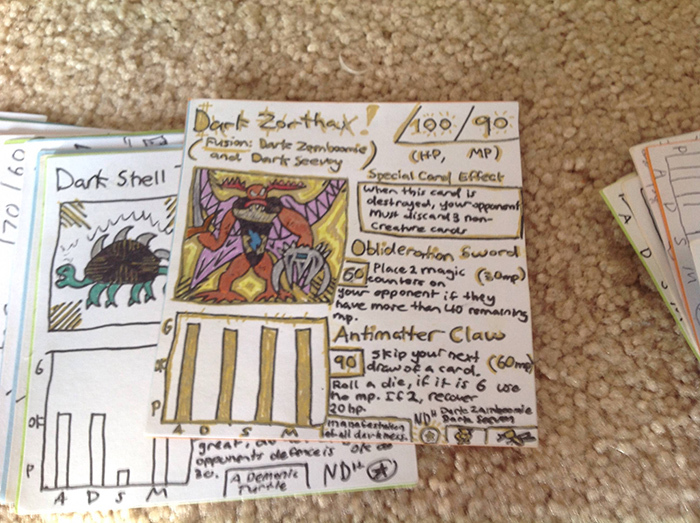 Dark Zorthax!
100/90
(Fusion: Dark Zamboomie
and Dark Seevoy)
(HP, MP)
Special Card Effect
When this card is
destrayed, your opponent
Must discard 3 non-
creature cards
Oblideration Sword
60 Place 2 magic (20mp)
counters on
your opponent if they
have more than 40 remaining
mp.
Antimatter Claw
90 Skip your next (60mp)
draw of a card.
Roll a die, if it is 6 use
no mp. If 2, recover
20 hp.
G
P
A D S M
of all darkness.
ND Dark Zamboomie
Dark Seevoy
Dark Shell
G
OK
P
A D S M
great,
opponents defence is
80.
A Demonic
Turtle
ND
170/60